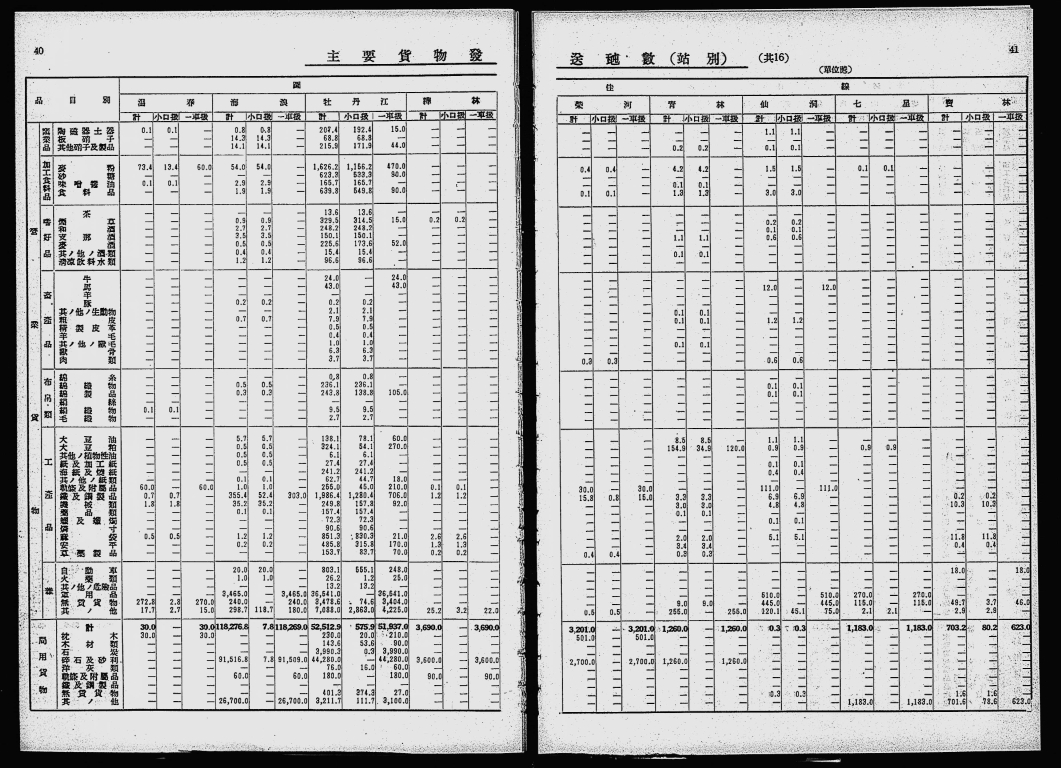 40
主要貨物發
圖
品目別
溫春
海浪
牡丹江
樺林
計 小口扱 一車扱 計 小口扱 一車扱 計 小口扱 一車扱 計 小口扱 一車扱
陶磁器土器 0.1 0.1 — 0.8 0.8 — 207.4 192.4 15.0 — — —
板硝子 — — — 14.3 14.3 — 68.8 68.8 — — — —
其他硝子及製品 — — — 14.1 14.1 — 215.9 171.9 44.0 — — —
麥粉 73.4 13.4 60.0 54.0 54.0 — 1,626.2 1,156.2 470.0 — — —
砂糖 — — — — — — 623.3 533.3 90.0 — — —
味噌醬油 0.1 0.1 — 2.9 2.9 — 165.7 165.7 — — — —
食料品 — — — 1.9 1.9 — 639.8 549.8 90.0 — — —
茶 — — — — — — 13.6 13.6 — — — —
煙草 — — — 0.9 0.9 — 329.5 314.5 15.0 0.2 0.2 —
和酒 — — — 2.7 2.7 — 248.2 248.2 — — — —
支那酒 — — — 3.5 3.5 — 150.1 150.1 — — — —
麥酒 — — — 0.5 0.5 — 225.6 173.6 52.0 — — —
其ノ他ノ酒類 — — — 0.4 0.4 — 15.4 15.4 — — — —
清涼飲料水類 — — — 1.2 1.2 — 96.6 96.6 — — — —
牛 — — — — — — 24.0 — 24.0 — — —
馬 — — — — — — 43.0 — 43.0 — — —
羊
豚 — — — 0.2 0.2 — 0.2 0.2 — — — —
其ノ他ノ生動物 — — — — — — 2.1 2.1 — — — —
粗皮 — — — 0.7 0.7 — 7.9 7.9 — — — —
精製皮革 — — — — — — 0.5 0.5 — — — —
羊毛 — — — — — — 0.4 0.4 — — — —
其ノ他ノ獸毛 — — — — — — 1.0 1.0 — — — —
獸骨 — — — — — — 6.3 6.3 — — — —
肉類 — — — — — — 3.7 3.7 — — — —
綿糸 — — — — — — 0.8 0.8 — — — —
綿織物 — — — 0.5 0.5 — 236.1 236.1 — — — —
綿製品 — — — 0.3 0.3 — 243.8 138.8 105.0 — — —
絹織物 0.1 0.1 — — — — 9.5 9.5 — — — —
毛織物 — — — — — — 2.7 2.7 — — — —
大豆油 — — — 5.7 5.7 — 138.1 78.1 60.0 — — —
大豆粕 — — — 0.5 0.5 — 324.1 54.1 270.0 — — —
其他ノ植物性油 — — — 0.5 0.5 — 6.1 6.1 — — — —
紙及加工紙 — — — 0.5 0.5 — 27.4 27.4 — — — —
241.2 241.2
其ノ他ノ紙類 — — — 0.1 0.1 — 62.7 44.7 18.0 — — —
車輛及附屬品 60.0 — 60.0 1.0 1.0 — 255.0 45.0 210.0 0.1 0.1 —
鐵及鋼製品 0.7 0.7 — 355.4 52.4 303.0 1,986.4 1,280.4 706.0 1.2 1.2 —
機械類 1.8 1.8 — 35.2 35.2 — 249.8 157.8 92.0 — — —
藥品類 — — — 0.1 0.1 — 157.4 157.4 — — — —
蠟及蠟燭 — — — — — — 72.3 72.3 — — — —
燐寸 — — — — — — 90.6 90.6 — — — —
麻袋 0.5 0.5 — 1.2 1.2 — 851.3 830.3 21.0 2.6 2.6 —
安平 — — — 0.2 0.2 — 485.8 315.8 170.0 1.3 1.3 —
草藁製品 — — — — — — 153.7 83.7 70.0 0.2 0.2 —
自動車 — — — 20.0 20.0 — 803.1 555.1 248.0 — — —
火藥類 — — — 1.0 1.0 — 26.2 1.2 25.0 — — —
其ノ他ノ危險品 — — — — — — 13.2 13.2 — — — —
軍用品 — — — 3,465.0 — 3,465.0 36,541.0 — 36,541.0 — — —
無賃貨物 272.8 2.8 270.0 240.0 — 240.0 3,478.6 74.6 3,404.0 — — —
其ノ他 17.7 2.7 15.0 298.7 118.7 180.0 7,088.0 2,863.0 4,225.0 25.2 3.2 22.0
計 30.0 — 30.0 118,276.8 7.8 118,269.0 52,512.9 575.9 51,937.0 3,690.0 — 3,690.0
枕木 30.0 — 30.0 — — — 230.0 20.0 210.0 — — —
木材類 — — — — — — 143.6 53.6 90.0 — — —
石炭 — — — — — — 3,990.3 0.3 3,990.0 — — —
碎石及砂利 — — — 91,516.8 7.8 91,509.0 44,280.0 — 44,280.0 3,600.0 — 3,600.0
洋灰類 — — — — — — 76.0 16.0 60.0 — — —
車輛及附屬品 — — — 60.0 — 60.0 180.0 — 180.0 90.0 — 90.0
鐵及鋼製品
無賃貨物 — — — — — — 401.3 374.3 27.0 — — —
其ノ他 — — — 26,700.0 — 26,700.0 3,211.7 111.7 3,100.0 — — —
41
送噸數(站別) (共16)
(單位瓲)
佳線
樂河
青林
仙洞
七星
寶林
計 小口扱 一車扱 計 小口扱 一車扱 計 小口扱 一車扱 計 小口扱 一車扱 計 小口扱 一車扱
1.1 1.1
0.2 0.2 — 0.1 0.1
0.4 0.4 — 4.2 4.2 — 1.5 1.5 — 0.1 0.1
0.1 0.1
0.1 0.1 — 1.3 1.3 — 3.0 3.0
0.2 0.2
0.1 0.1
1.1 1.1 — 0.6 0.6
0.1 0.1
12.0 — 12.0
0.1 0.1
0.1 0.1 — 1.2 1.2
0.1 0.1
0.3 0.3 — — — — 0.6 0.6
0.1 0.1
0.1 0.1
8.5 8.5 — 1.1 1.1
154.9 34.9 120.0 0.9 0.9 — 0.9 0.9
0.1 0.1
0.4 0.4
30.0 — 30.0 — — — 111.0 — 111.0
15.8 0.8 15.0 3.3 3.3 — 6.9 6.9 — — — — 0.2 0.2
3.0 3.0 — 4.8 4.8 — — — — 10.3 10.3
0.1 0.1
0.1 0.1
2.0 2.0 — 5.1 5.1 — — — — 11.8 11.8
3.4 3.4 — — — — — — — 0.4 0.4
0.4 0.4 — 0.3 0.3
18.0 — 18.0
510.0 — 510.0 270.0 — 270.0
9.0 9.0 — 445.0 — 445.0 115.0 — 115.0 49.7 3.7 46.0
0.5 0.5 — 255.0 — 255.0 120.1 45.1 75.0 2.1 2.1 — 2.9 2.9 —
3,201.0 — 3,201.0 1,260.0 — 1,260.0 0.3 0.3 — 1,183.0 — 1,183.0 703.2 80.2 623.0
501.0 — 501.0
2,700.0 — 2,700.0 1,260.0 — 1,260.0
0.3 0.3 — — — — 1.6 1.6 —
1,183.0 — 1,183.0 701.6 78.6 623.0